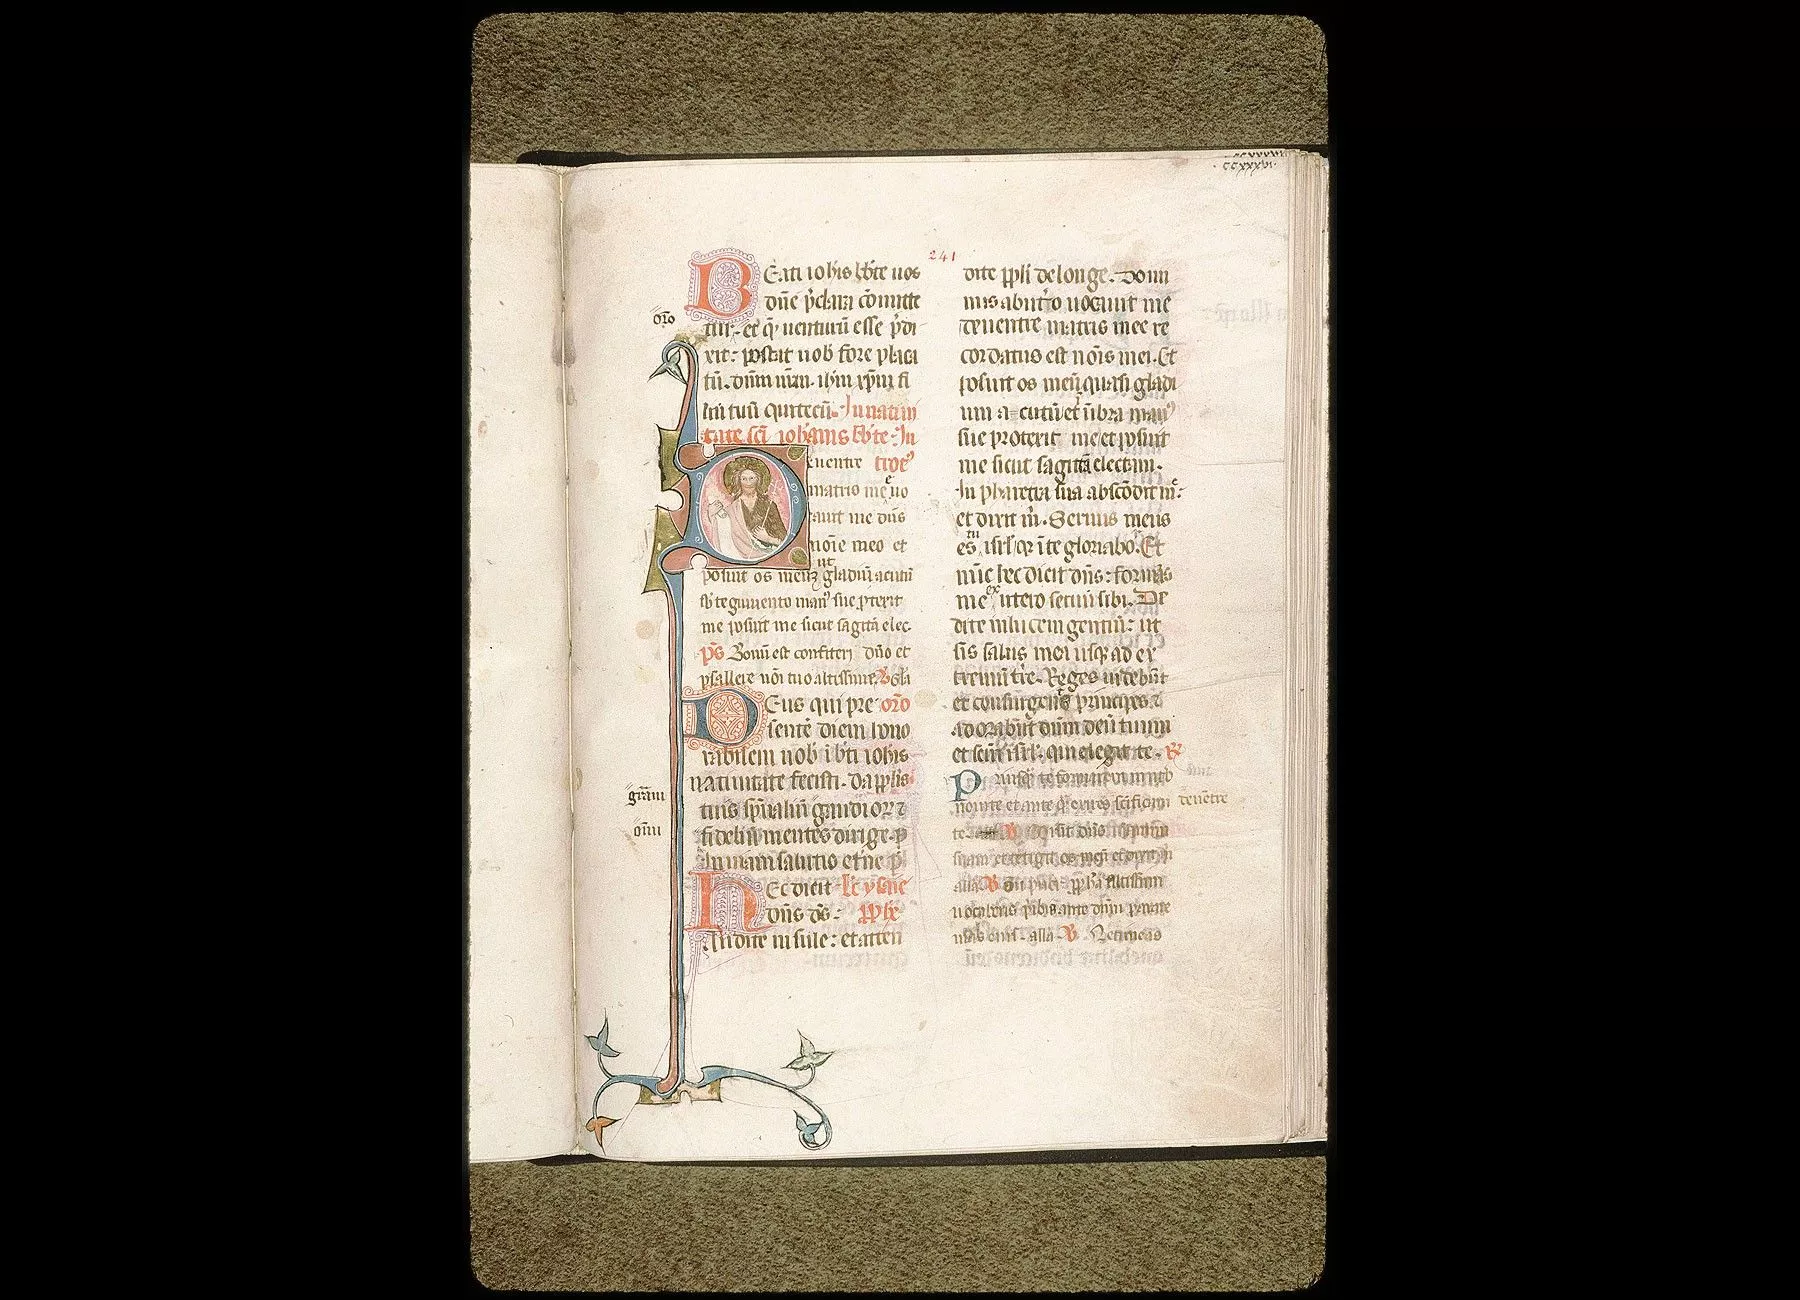 ccxxxvi.
241
BEati ioh̄is bb̄te nos
dn̄e p̄clara comitte
tur. et q̄ uenturū esse p̄di
xit: p̄stat nob̄ fore placa
tū. dn̄m nr̄m. ih̄m xp̄m fi
lium tuū qui tecū. In natiui
tate sc̄i ioh̄annis bb̄te. In
De uentre troꝰ
matris mee uo
cauit me dn̄s
noīe meo et
posuit os meuȝ ut gladiū acutū
sb̄ tegumento manꝰ sue p̄texit
me posuit me sicut sagitā elec.
p̄s Bonū est confiteri dn̄o et
psallere noī tuo altissime. V Gla
DEus qui pre or̄o
sentē diem hono
rabilem nob̄ i bt̄i ioh̄is
natiuitate fecisti. da pplis
tuis sp̄ualiū gaudiorȝ
fideliū mentes dirige p̄
in uiam salutis et ne p̄
HEc dicit Lc̄ ysaie
dn̄s ds̄. ppħe
Audite insule: et atten
or̄o
gr̄am
om̄iu
dite ppl̄i de longe. Domi
nus ab utꝰo uocauit me
de uentre matris mee re
cordatus est noīs mei. Et
posuit os meū quasi gladi
um acutū et ūbra manꝰ
sue protexit me et posuit
me sicut sagittā electam.
In pharetra sua abscōdit me:
et dixit m̄. Seruus meus
es tu isrl̄ qr̄ i te gloriabor. Et
nūc hec dicit dn̄s: formās
me ex utero seruū sibi. De
dite in lucem gentiū: ut
sis salus mea usqȝ ad ex
tremū tr̄e. Reges uidebūt
et consurgent principes
adorabūt dn̄m deū tuum
et scm̄ isrl̄. qui elegit te. R
Priusqȝ te formarem in utero
noui te et ante qȝ exires sc̄ificaui
de uentre
te V Misit dn̄s manum
suam et tetigit os meū et dixit m̄
alla V Tu puer ppħa altissimi
uocaberis p̄ibis ante dn̄m parare
uias eius. alla V Ne timeas